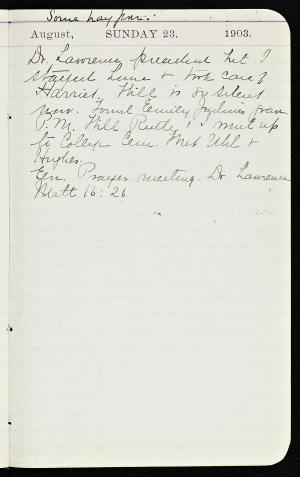 Some hay fever.
August, SUNDAY 23. 1903.
Dr. Lawrence preached but I
stayed home & took care of
Harriet. Will is so silent
now. Aunt Emily
P.M. Will Ruth & I went up
to College Cem. Met Will &
Hughes.
Eve. Prayer meeting. Dr. Lawrence
Matt 16:26